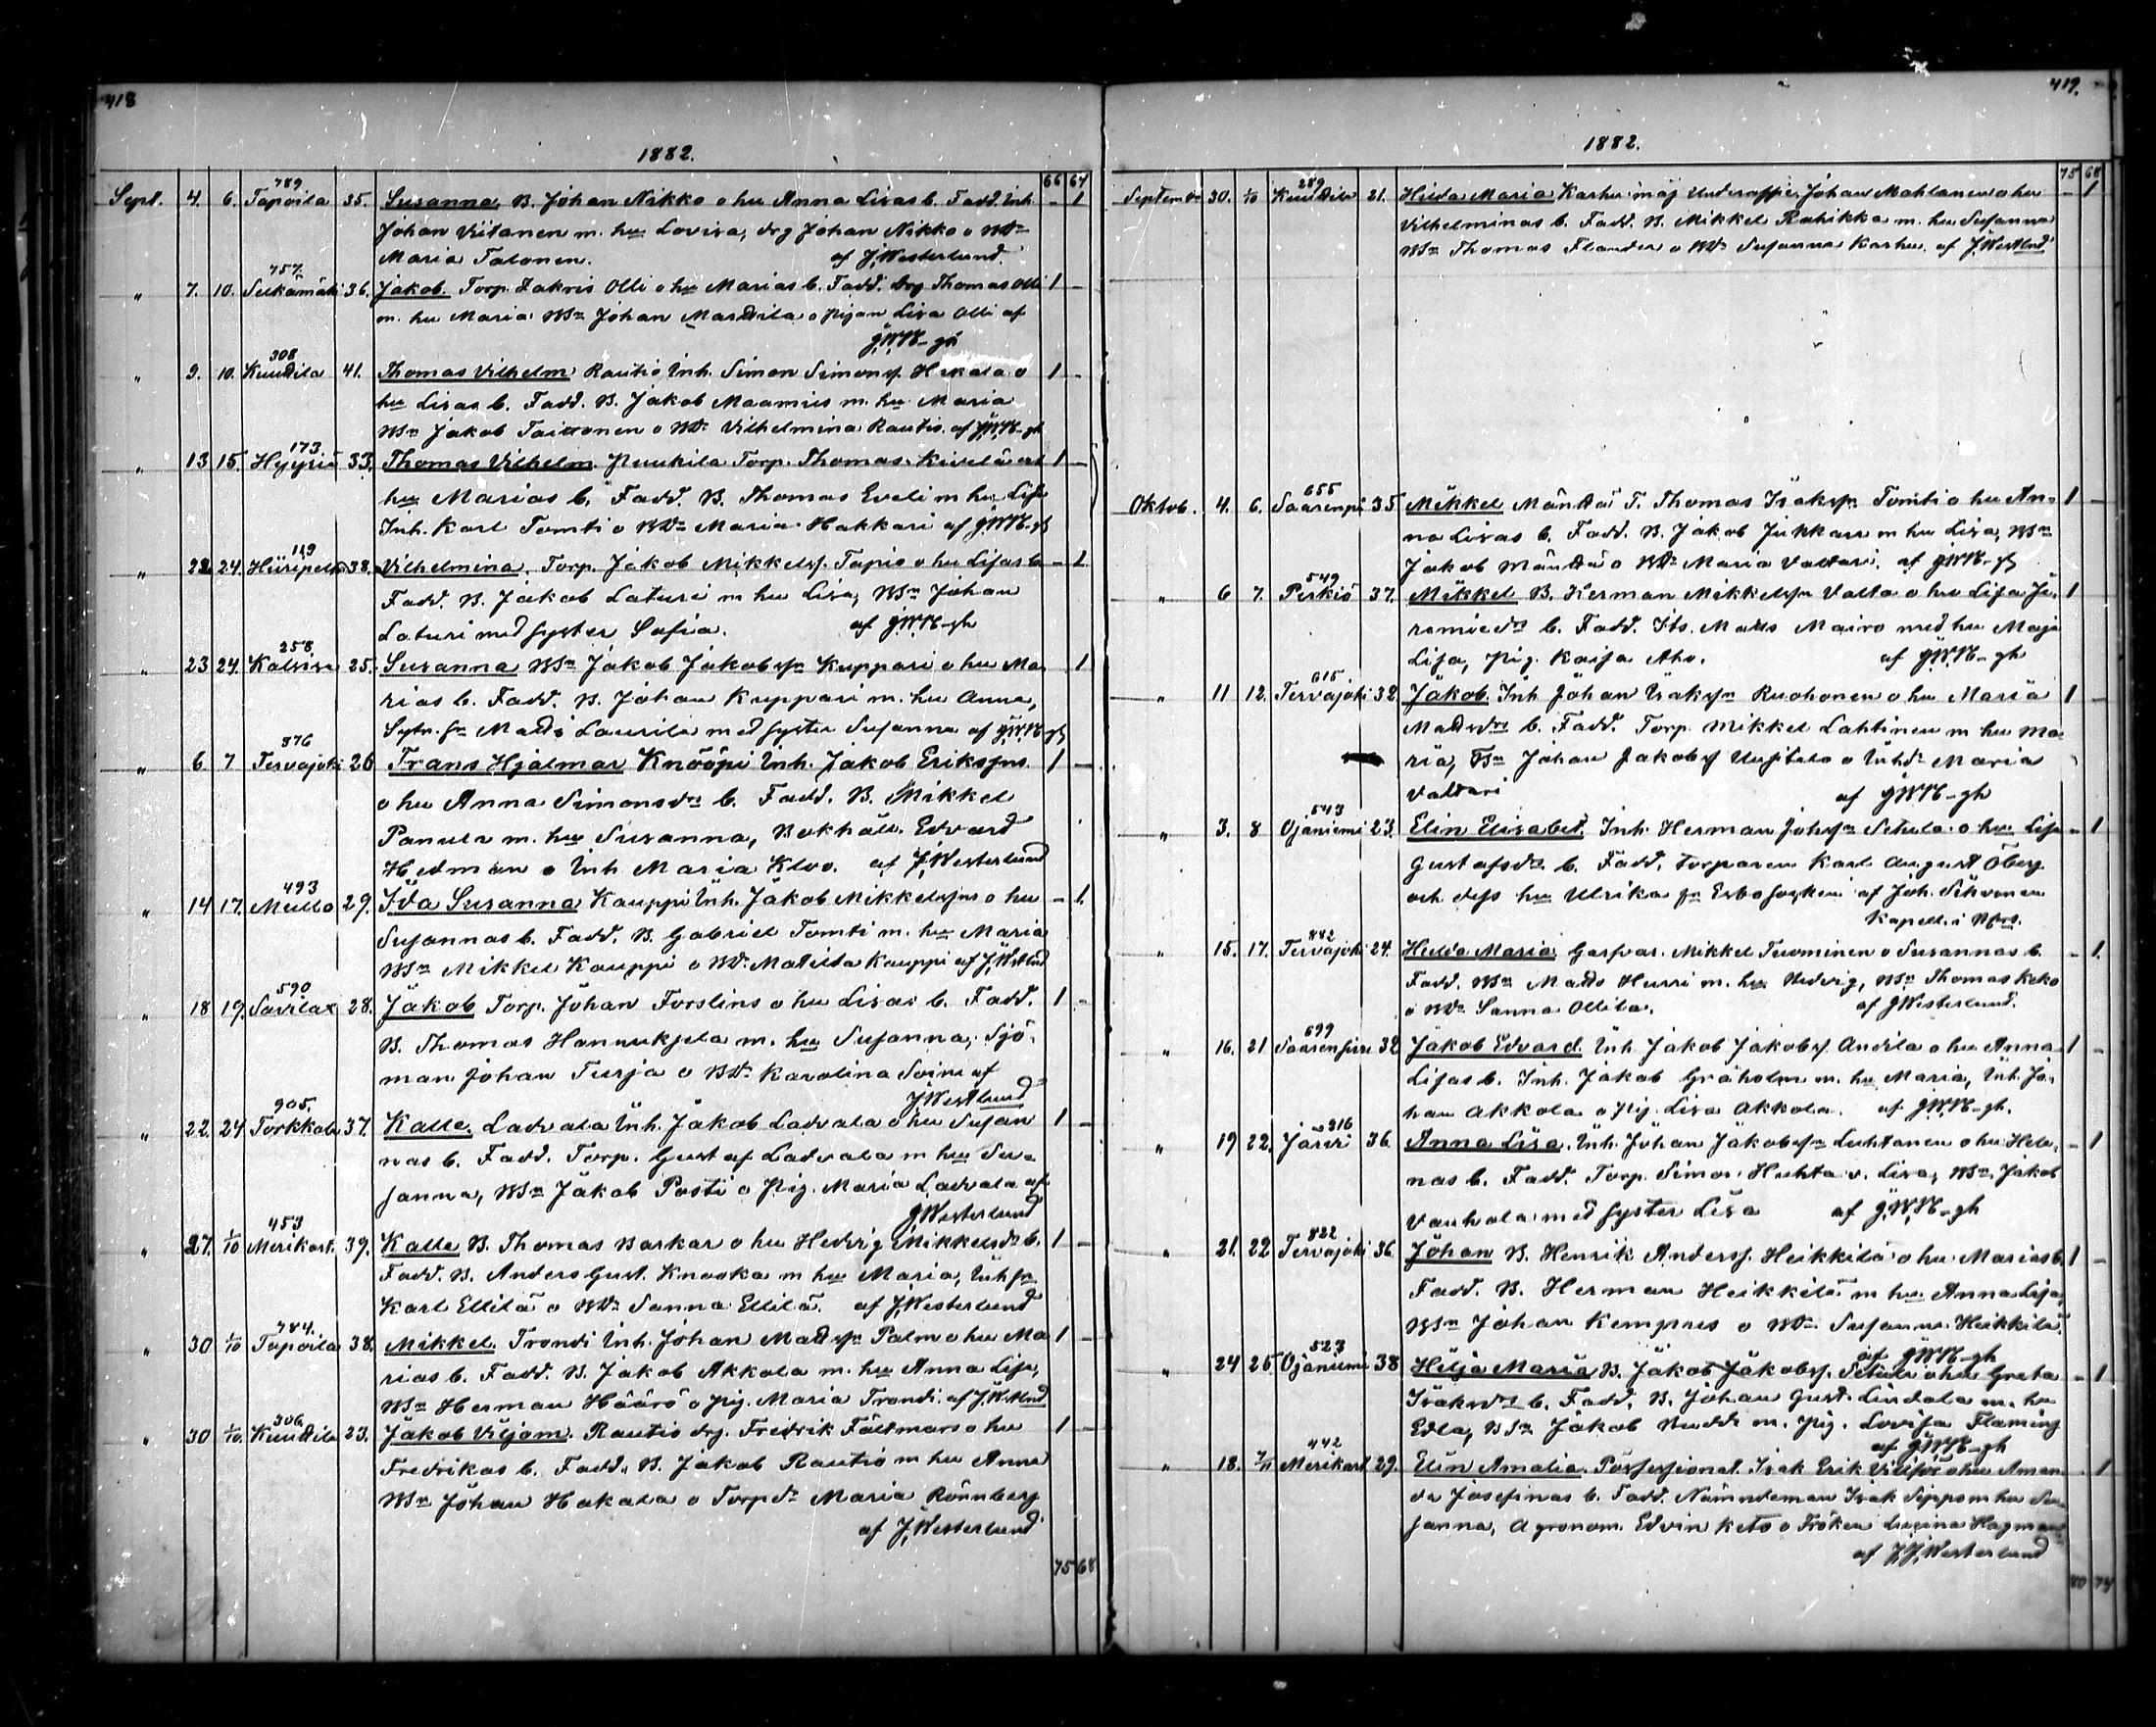 418
1882.
66 67
789
Sept. 4. 6. Tapoila 35. Susanna, B. Johan Nikko o hu Anna Lisas b. Fadd. Inh.
Johan Viitanen m. hu Lovisa, drg Johan Nikko o
Maria Talonen. af J. Westerlund. - 1
757.
" 7. 10. 36. Jakob. Torp. Zakris Olli o hu Marias b. Fadd. Drg Thomas Olli 1 -
m. hu Maria Johan Marttila o pigan Lisa Olli af
308
" 9. 10. Kuuttila 41. Thomas Vilhelm Rautio Inh. Simon Simons. o 1 -
hu Lisas b. Fadd. B. Jakob Maamies m. hu Maria
Jakob o Vilhelmina Rautio. af
173
" 13 15. Hyypiä 33. Thomas Vilhelm. Torp. Thomas 1 -
hu Marias b. Fadd. B. Thomas Eveli m hu Lisa
Inh. Karl Tomti o Maria Hakkari af
119
" 22 24. 38. Vilhelmina. Torp. Jakob Mikkelss. Tapio o hu Lisas b - 1
Fadd. B. Jakob Laturi m hu Lisa, Johan
Laturi med syster Sofia. af
258
" 23 24. 25. Susanna Jakob Jakobsn Kuppari o hu Ma - 1
rias b. Fadd. B. Johan Kuppari m. hu Anna,
Matts Laurila med syster Susanna af
876
" 6 7 Tervajoki 26 Frans Hjalmar Knööpi Inh. Jakob Eriksns 1 -
o hu Anna Simonsdr b. Fadd. B. Mikkel
Panula m. hu Susanna, Bokhåll. Edvard
Hedman o Inh Maria Kloo. af J. Westerlund
493
" 14 17. Mullo 29. Ida Susanna Kauppi Inh. Jakob Mikkelsns o hu - 1.
Susannas b. Fadd. B. Gabriel Tomti m. hu Maria
Mikkel Kauppi o Matilda Kauppi af J. Westlund
590
" 18 19. Savilax 28. Jakob Torp. Johan Forslins o hu Lisas b. Fadd. 1 -
B. Thomas Hannukzela m. hu Susanna, Sjö-
man Johan Tursja o Karolina Soini af
J Westlund
905.
" 22. 24 Torkkola 37. Kalle. Ladvala Inh. Jakob Ladvala o hu Susan 1 -
nas b. Fadd. Torp. Gustaf Ladvala m hu Su-
sanna, Jakob Posti o pig. Maria Ladvala af
J Westerlund
453
" 27. 1/10 Merikart. 39. Kalle B. Thomas Barkar o hu Hedvig Mikkelsdr b. 1 -
Fadd. B. Anders Gust. Knooka m hu Maria, Inhsn
Karl Ellilä o Sanna Ellilä. af J. Westerlund
784.
" 30 1/10 Tapoila 38. Mikkel. Trondi Inh. Johan Mattsn Palm o hu Ma 1 -
rias b. Fadd. B. Jakob Akkola m. hu Anna Lisa,
Herman Häärö o pig. Maria Trondi. af
306
" 30 1/10. Kuuttila 23. Jakob Viljam. Rautio drg. Fredrik Fältmars o hu 1 -
Fredrikas b. Fadd. B. Jakob Rautio m hu Anna
Johan Hakala o Torpdr Maria Rönnberg
af J. Westerlund
75 68
419.
1882.
75 68
289
Septemb. 30. 1/10 Kuuttila 21. Hilda Maria Karhu Johan Mahlanen o hu - 1
Vilhelminas b. Fadd. B. Mikkel Rahikka m. hu Susanna
Thomas Flander o Susanna Karhu. af J. Westlund
655
Oktob. 4. 6. Saarenpä 35 Mikkel Mänttä T. Thomas Isaksn Tomti o hu An- 1 -
na Lisas b. Fadd. B. Jakob m hu Lisa,
Jakob Mänttä o Maria Valtari. af
549
" 6 7. Perkiö 37. Mikkel B. Herman Mikkelsn Valta o hu Lisa Je- 1
remiedr b. Fadd. Matts Mairo med hu Maja
Lisa, pig. Kaisa Aho. af
615.
" 11 12. Tervajoki 32 Jakob. Inh Johan Isaksn Ruohonen o hu Maria 1 -
Mattsdrs b. Fadd. Torp. Mikkel Lahtinen m hu Ma-
ria, Johan Jakobs Uusitalo o Inhdr Maria
Valtari af
543
" 3. 8 Ojaniemi 23. Elin Elisabet. Inh. Herman Johnsn Setula o hu Lisa - 1
Gustafsdr b. Fadd. Torparen Karl August Öberg
och dess hu Ulrika fr Esbo socken af Joh. Sihvonen
Kapell. i
882
" 15. 17. Tervajoki 24. Hilda Maria Mikkel Tuominen o Susannas b. - 1.
Fadd. Matts Hurri m. hu Hedvig, Thomas Keko
o Sanna Ollila. af J Westerlund.
699
" 16. 21 32 Jakob Edvard. Inh Jakob Jakobs. Antila o hu Anna 1 -
Lisas b. Inh. Jakob Gråholm m. hu Maria, Inh. Jo-
han Akkola o pig. Lisa Akkola. af
316
" 19 22. Järvi 36. Anna Lisa. Inh. Johan Jakobsn Luhtanen o hu Hele- - 1
nas b. Fadd. Torp. Simon Huhta o. Lisa, Jakob
Vanhala med syster Lisa af
822
" 21. 22 Tervajoki 36. Johan B. Henrik Anderss. Heikkilä o hu Marias b. 1 -
Fadd. B. Herman Heikkilä m hu Anna Lisa,
Johan Kemppes o Susanna Heikkilä.
af
523
" 24 25 Ojaniemi 38 Hilja Maria B. Jakob Jakobs. Setula o hu Greta - 1
Isaksdr b. Fadd. B. Johan Gust. Lindala m. hu
Edla, Jakob m. pig. Lovisa Flaming
af
442
" 18. Merikart 29. Elin Amalia. Possessionat. Isak Erik o hu Aman - 1
da Josefinas b. Fadd. Nämndeman Isak Sippo m hu Su-
sanna, Agronom. Edvin Keto o Fröken Hagman
af J. J. Westerlund
80 74